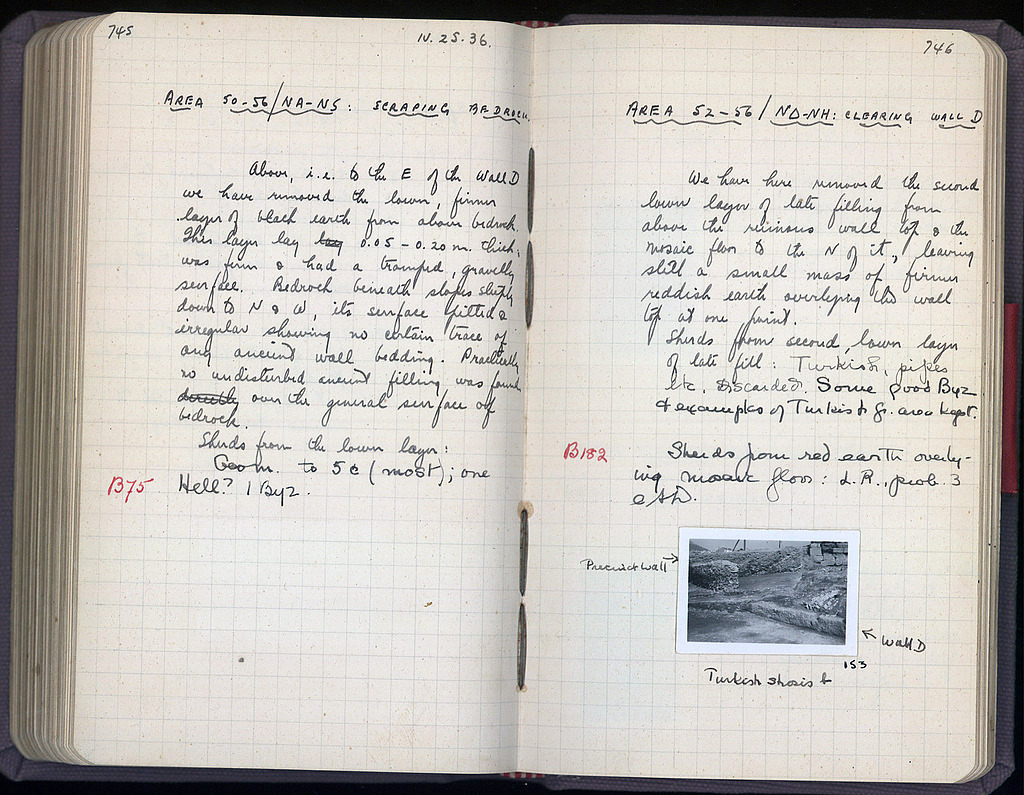 745
IV. 25. 36.
AREA 50-56/NA-NS: SCRAPING BEDROCK
Above, i.e. to the E of the Wall D
we have removed the lower, firmer
layer of black earth from above bedrock.
This layer lay lay 0.05 – 0.20 m. thick,
was firm & had a tramped, gravelly
surface. Bedrock beneath slopes steeply
down to N & W, its surface pitted &
irregular showing no certain trace of
any ancient wall bedding. Practically
no undisturbed ancient filling was found
directly over the general surface of
bedrock.
Sherds from the lower layer:
Geom. to 5c (most); one
B75 Hell? 1 Byz.
746
AREA 52-56/ND-NH: CLEARING WALL D
We have here removed the second
lower layer of late filling from
above the ruinous wall top & the
mosaic floor to the N of it, leaving
still a small mass of firmer
reddish earth overlying the wall
top at one point.
Sherds from second, lower layer
of late fill: Turkish, pipes
etc. Discarded. Some good Byz
& examples of Turkish gr. area kept.
B182 Sherds from red earth overly-
ing mosaic floor: L.R., prob. 3
Precinct Wall →
← Wall D
153
Turkish